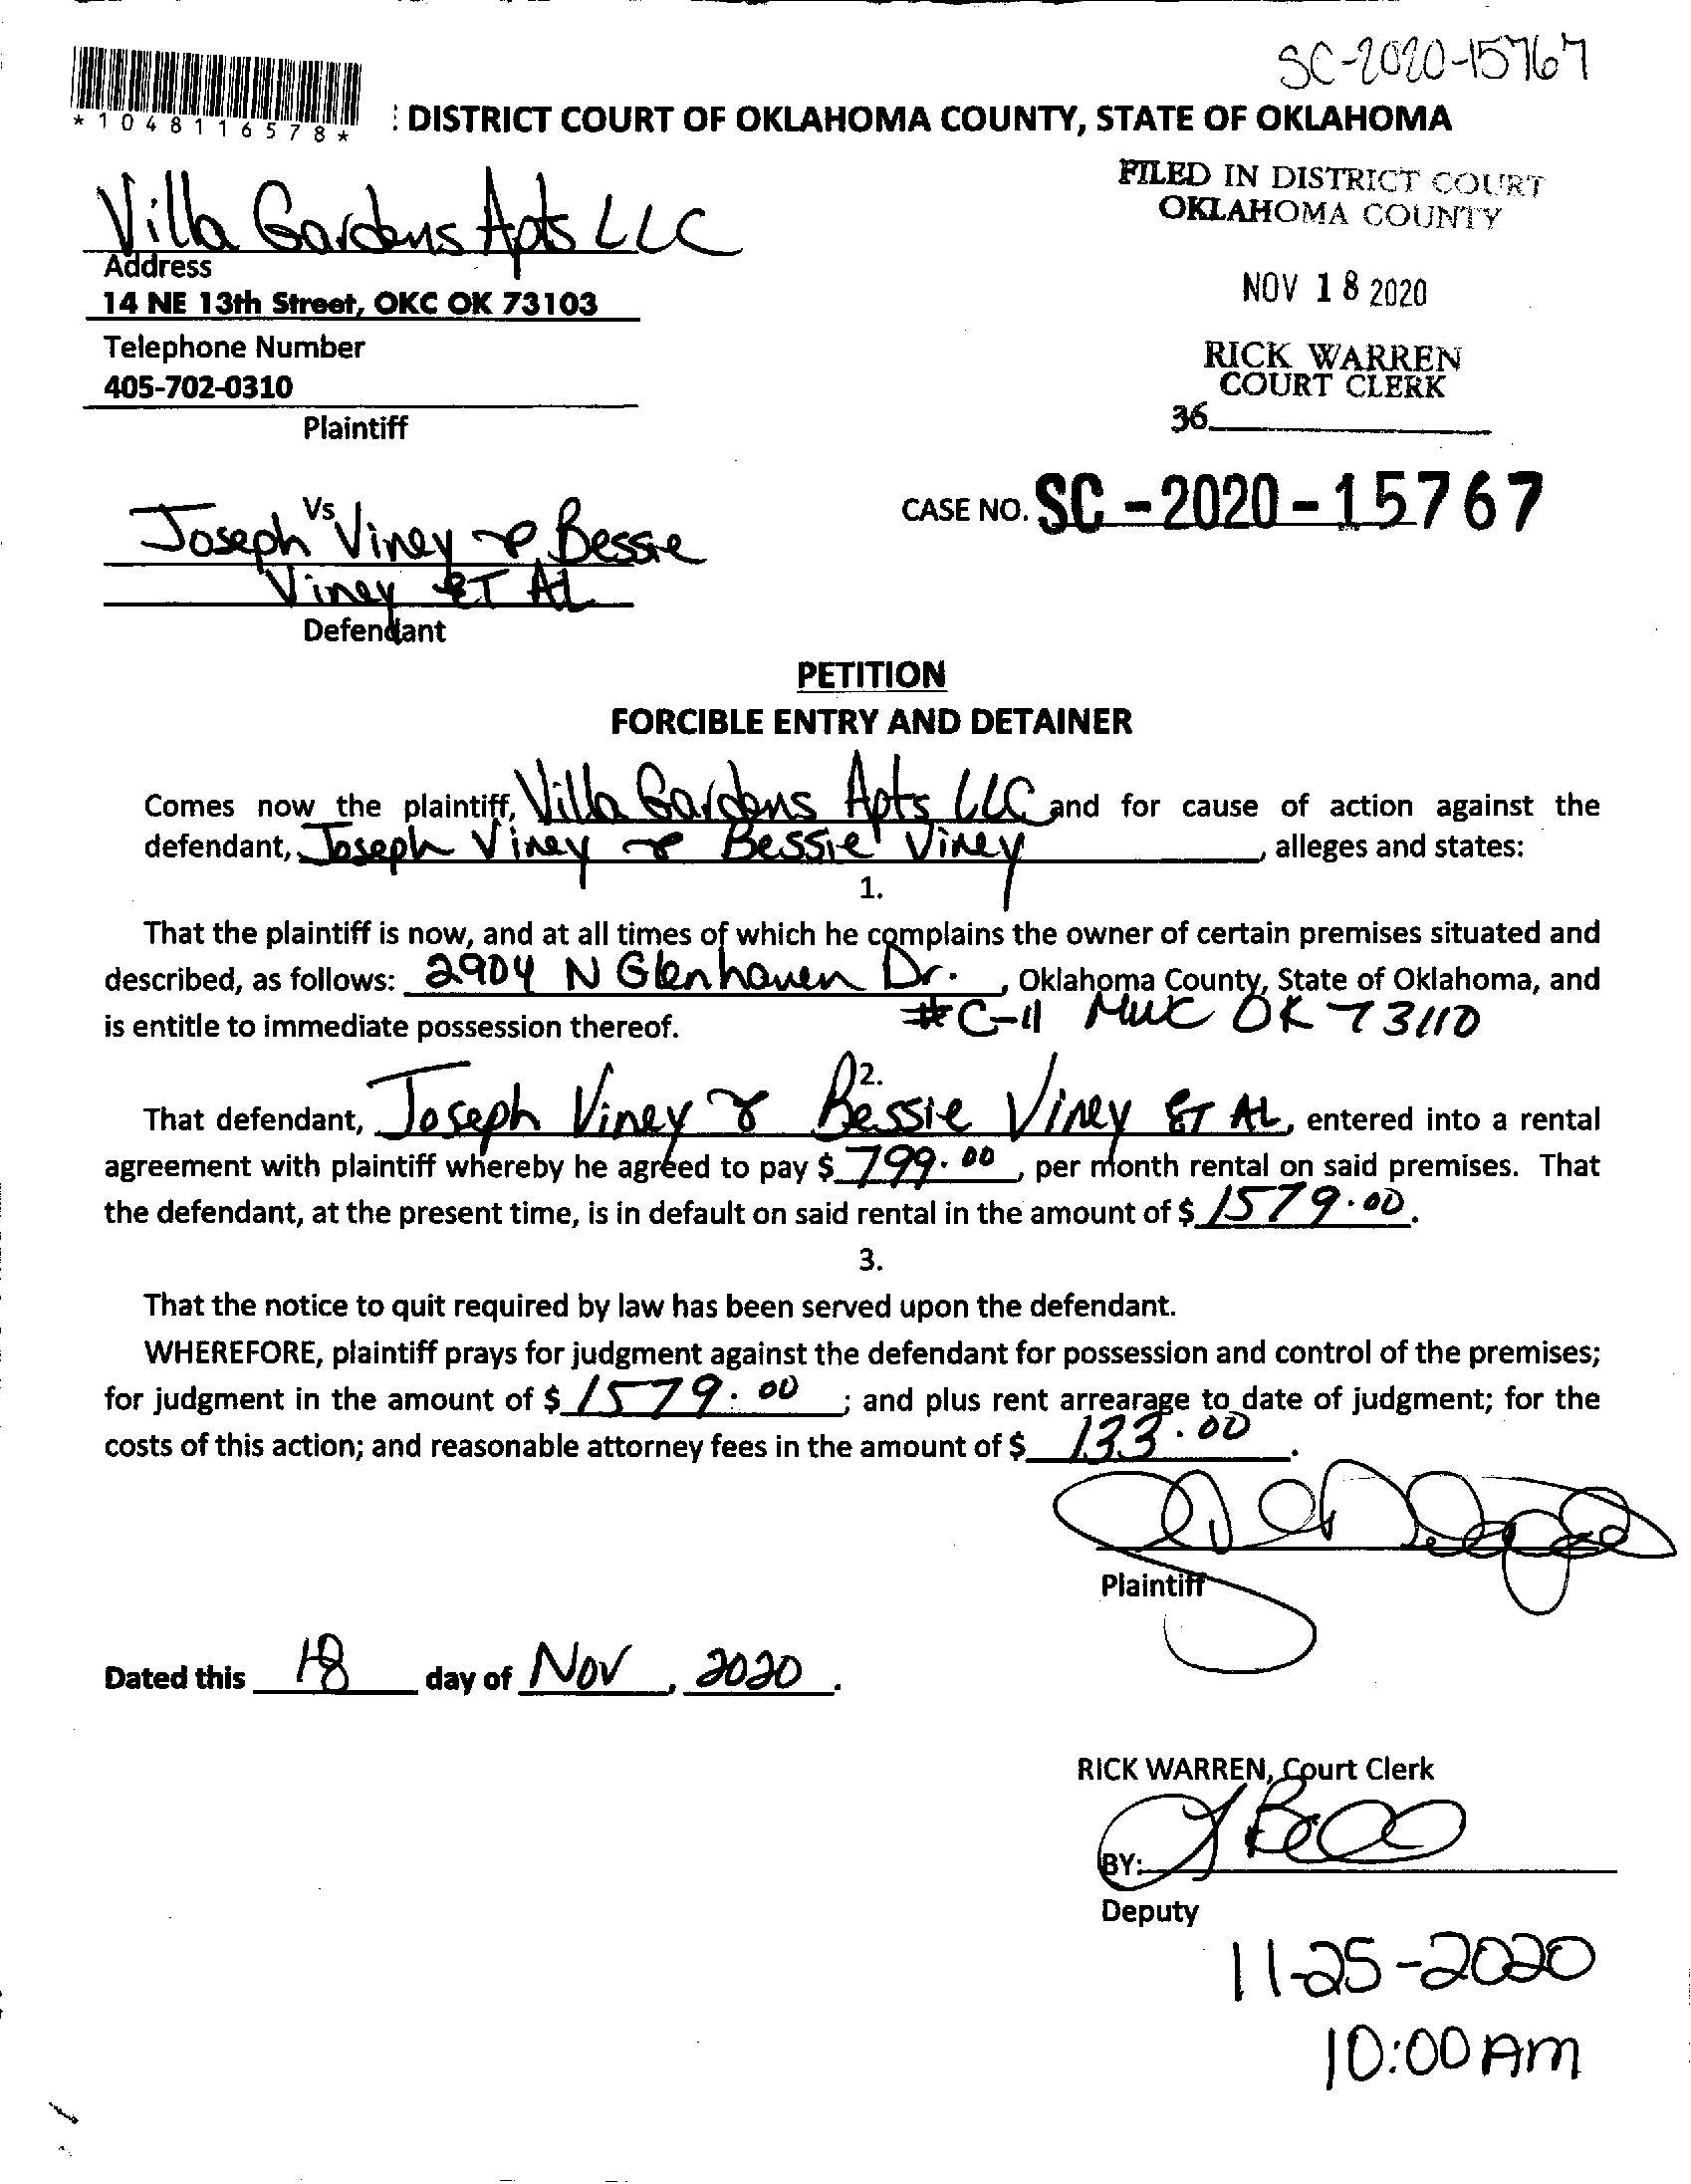 SC-2020-15767
*1048116578*
: DISTRICT COURT OF OKLAHOMA COUNTY, STATE OF OKLAHOMA
FILED IN DISTRICT COURT
OKLAHOMA COUNTY
Villa Gardens Apts LLC
Address
14 NE 13th Street, OKC OK 73103
NOV 18 2020
Telephone Number
405-702-0310
RICK WARREN
COURT CLERK
36
Plaintiff
Vs
CASE NO. SC-2020-15767
Joseph Viney & Bessie
Viney ET AL
Defendant
PETITION
FORCIBLE ENTRY AND DETAINER
Comes now the plaintiff, Villa Gardens Apts LLC and for cause of action against the
defendant, Joseph Viney & Bessie Viney, alleges and states:
1.
That the plaintiff is now, and at all times of which he complains the owner of certain premises situated and
described, as follows: 2904 N Glenhaven Dr., Oklahoma County, State of Oklahoma, and
#C-11 MWC OK 73110
is entitle to immediate possession thereof.
2.
That defendant, Joseph Viney & Bessie Viney ET AL, entered into a rental
agreement with plaintiff whereby he agreed to pay $ 799.00, per month rental on said premises. That
the defendant, at the present time, is in default on said rental in the amount of $ 1579.00.
3.
That the notice to quit required by law has been served upon the defendant.
WHEREFORE, plaintiff prays for judgment against the defendant for possession and control of the premises;
for judgment in the amount of $ 1579.00; and plus rent arrearage to date of judgment; for the
costs of this action; and reasonable attorney fees in the amount of $ 133.00.
Plaintiff
Dated this 18 day of Nov, 2020.
RICK WARREN, Court Clerk
BY:
Deputy
11-25-2020
10:00 AM